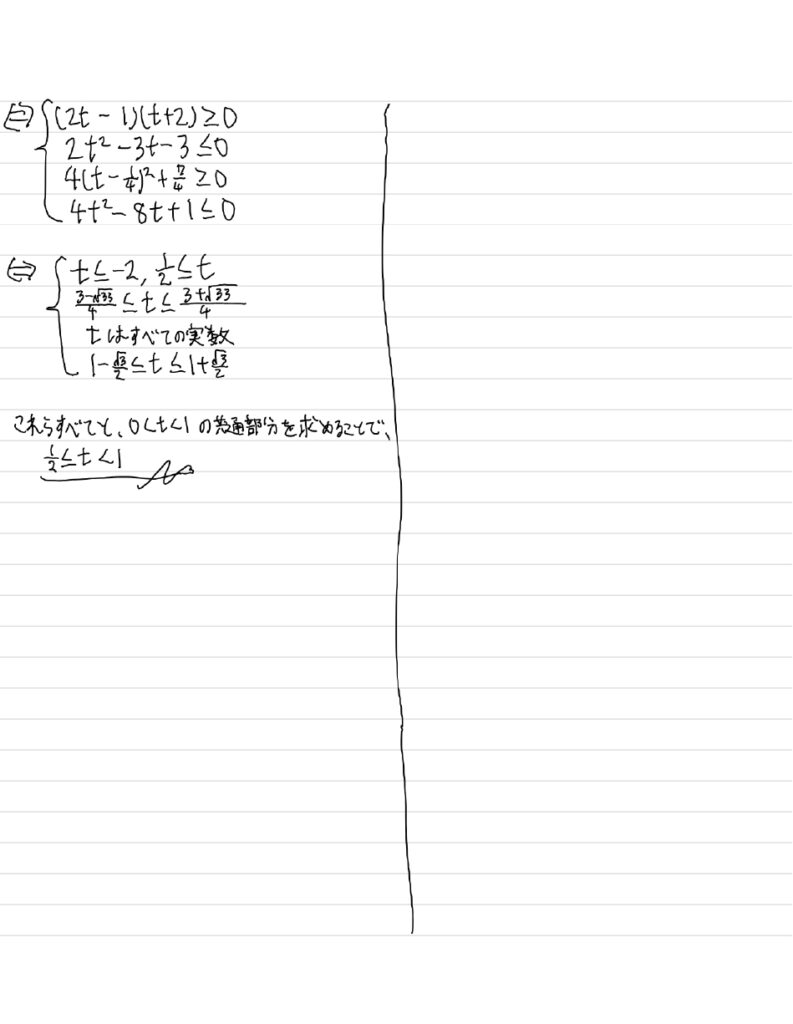 ⇔ { (2t - 1)(t+2) ≥ 0
2t² - 3t - 3 ≤ 0
4(t - 1/4)² + 7/4 ≥ 0
4t² - 8t + 1 ≤ 0
⇔ { t ≤ -2, 1/2 ≤ t
(3-√33)/4 ≤ t ≤ (3+√33)/4
tはすべての実数
1 - √3/2 ≤ t ≤ 1 + √3/2
これらすべてと、0<t<1の共通部分を求めることで、
1/2 ≤ t < 1